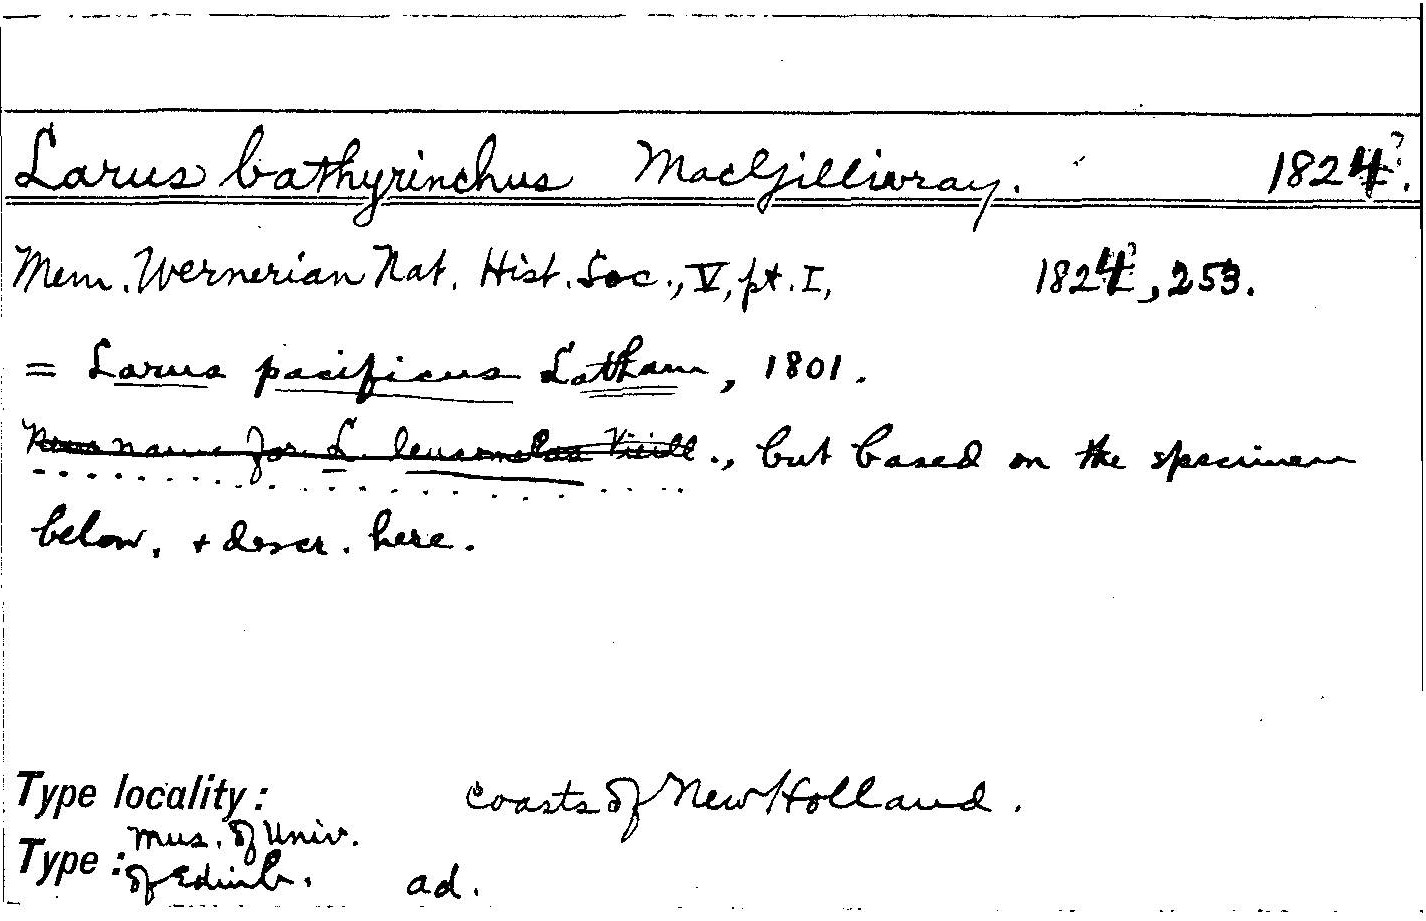 Larus bathyrinchus MacGillivray. 1824?.
Mem. Wernerian Nat. Hist. Soc., V, pt. I, 1824?, 253.
= Larus pacificus Latham, 1801.
New name for L. leucomelas Vieill., but based on the specimen
below, + descr. here.
Type locality: coasts of New Holland.
Type: Mus. of Univ.
of Edinb. ad.